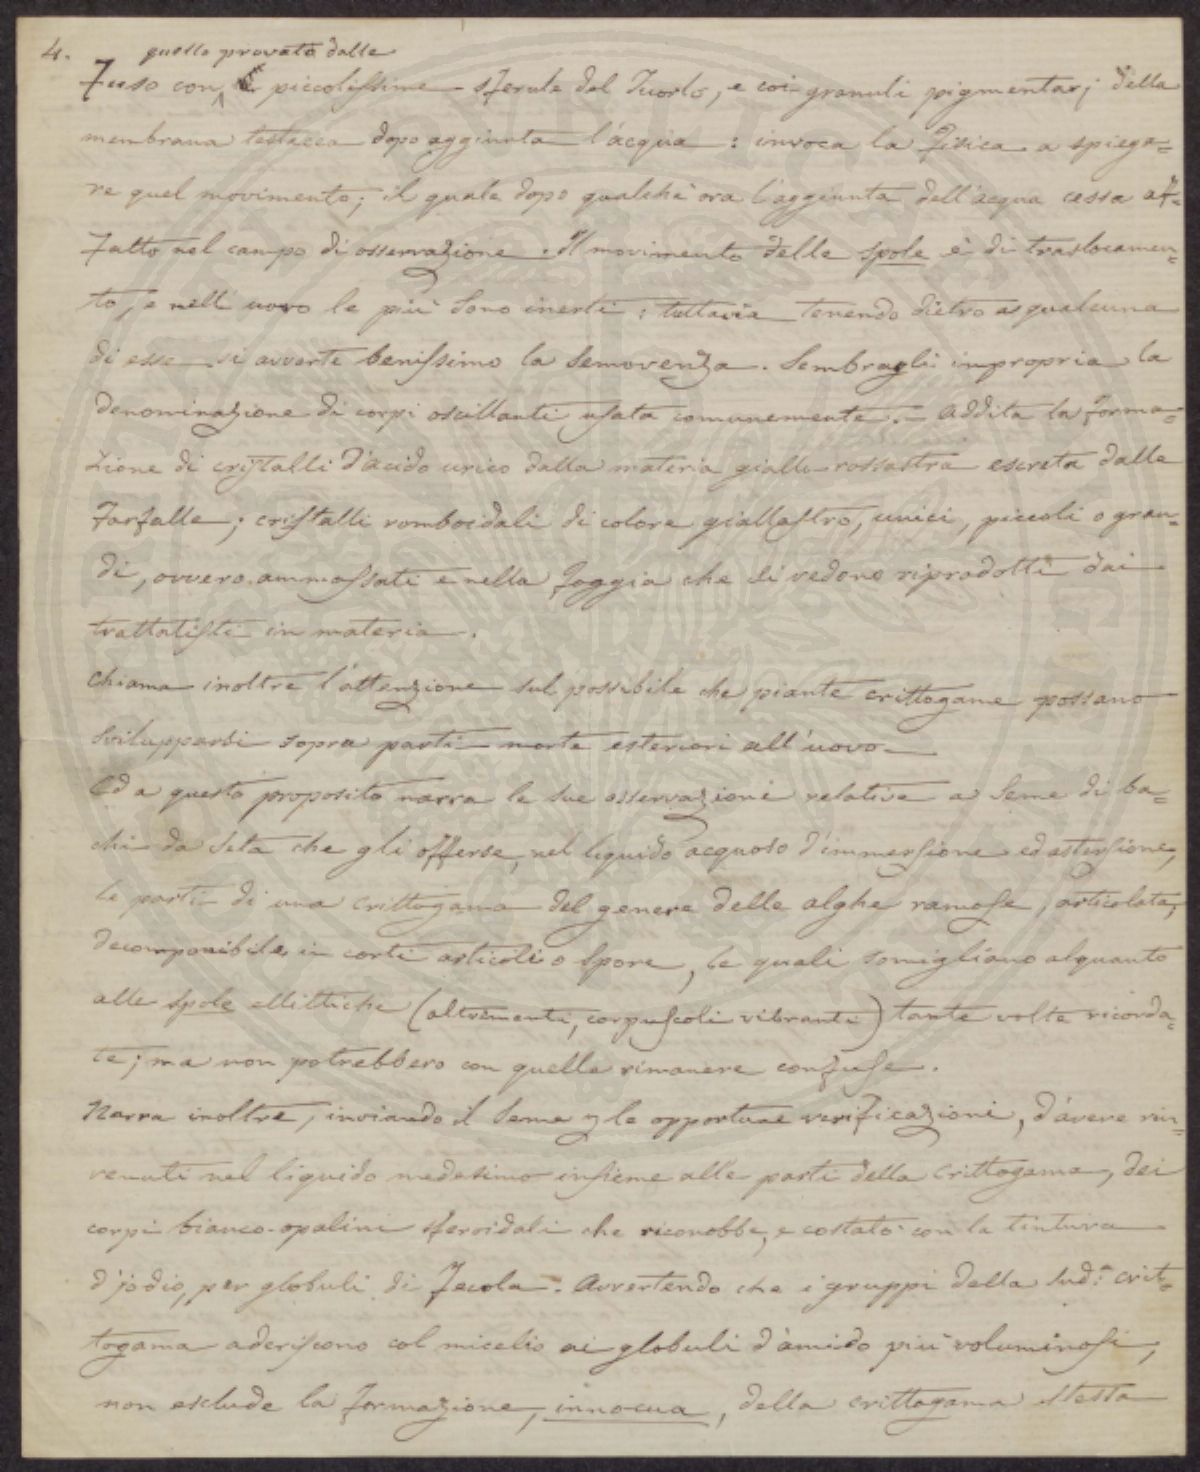 4.
quello provato dalle
fuso con piccolissime sferule del tuorlo, e coi granuli pigmentarj della
membrana testacea dopo aggiunta l'acqua: invoca la fisica a spiega=
re quel movimento; il quale dopo qualche ora l'aggiunta dell'acqua cessa af=
fatto nel campo di osservazione. Il movimento delle spole è di traslocamen=
to, e nell'uovo le più sono inerti; tuttavia tenendo dietro a qualcuna
di esse si avverte benissimo la semovenza. Sembragli impropria la
denominazione di corpi oscillanti usata comunemente. - Addita la forma=
zione di cristalli d'acido urico dalla materia giallo-rossastra escreta dalle
farfalle; cristalli romboidali di colore giallastro, unici, piccoli o gran=
di, ovvero ammassati e nella foggia che si vedono riprodotti dai
trattatisti in materia.
Chiama inoltre l'attenzione sul possibile che piante crittogame possano
svilupparsi sopra parti morte esteriori all'uovo.
Ed a questo proposito narra le sue osservazioni relative a seme di ba=
chi da seta che gli offerse, nel liquido acquoso d'immersione ed astersione,
le parti di una crittogama del genere delle alghe ramose, articolata,
decomponibile in corti articoli o spore, le quali somigliano alquanto
alle spole ellittiche (altrimenti, corpuscoli vibranti) tante volte ricorda=
te; ma non potrebbero con quelle rimanere confuse.
Narra inoltre, inviando il seme p le opportune verificazioni, d'avere rin=
venuti nel liquido medesimo insieme alle parti della crittogama, dei
corpi bianco-opalini sferoidali che riconobbe, e costatò con la tintura
d'jodio, per globuli di fecola. Avvertendo che i gruppi della sud.a crit=
togama aderiscono col micelio ai globuli d'amido più voluminosi,
non esclude la formazione, innocua, della crittogama stessa